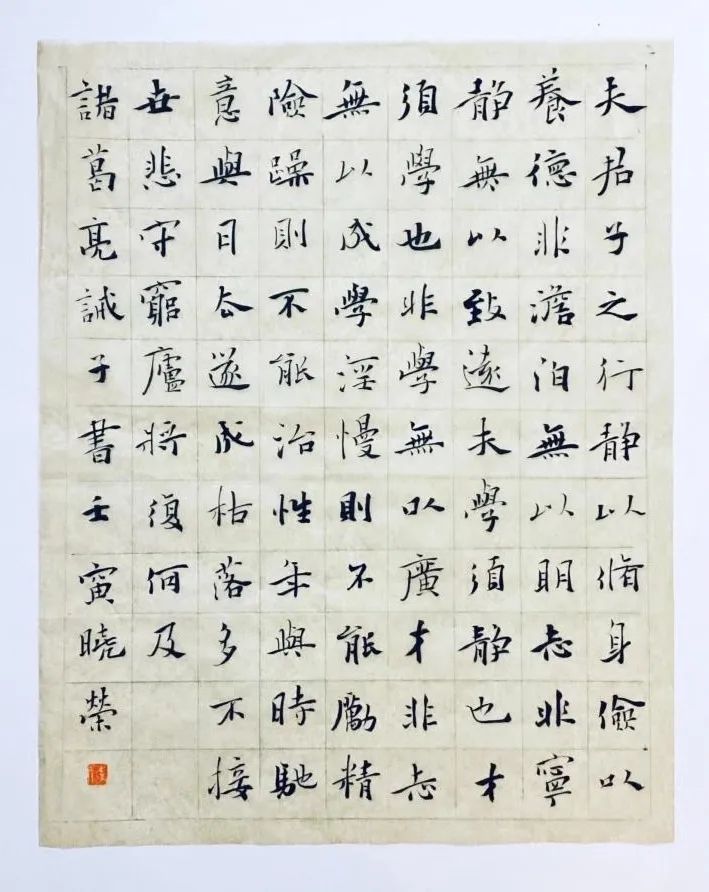 夫君子之行静以脩身儉以
養德非澹泊無以明志非寧
静無以致遠夫學須静也才
須學也非學無以廣才非志
無以成學淫慢則不能勵精
險躁則不能治性年與時馳
意與日去遂成枯落多不接
世悲守窮廬將復何及
諸葛亮誡子書壬寅曉榮